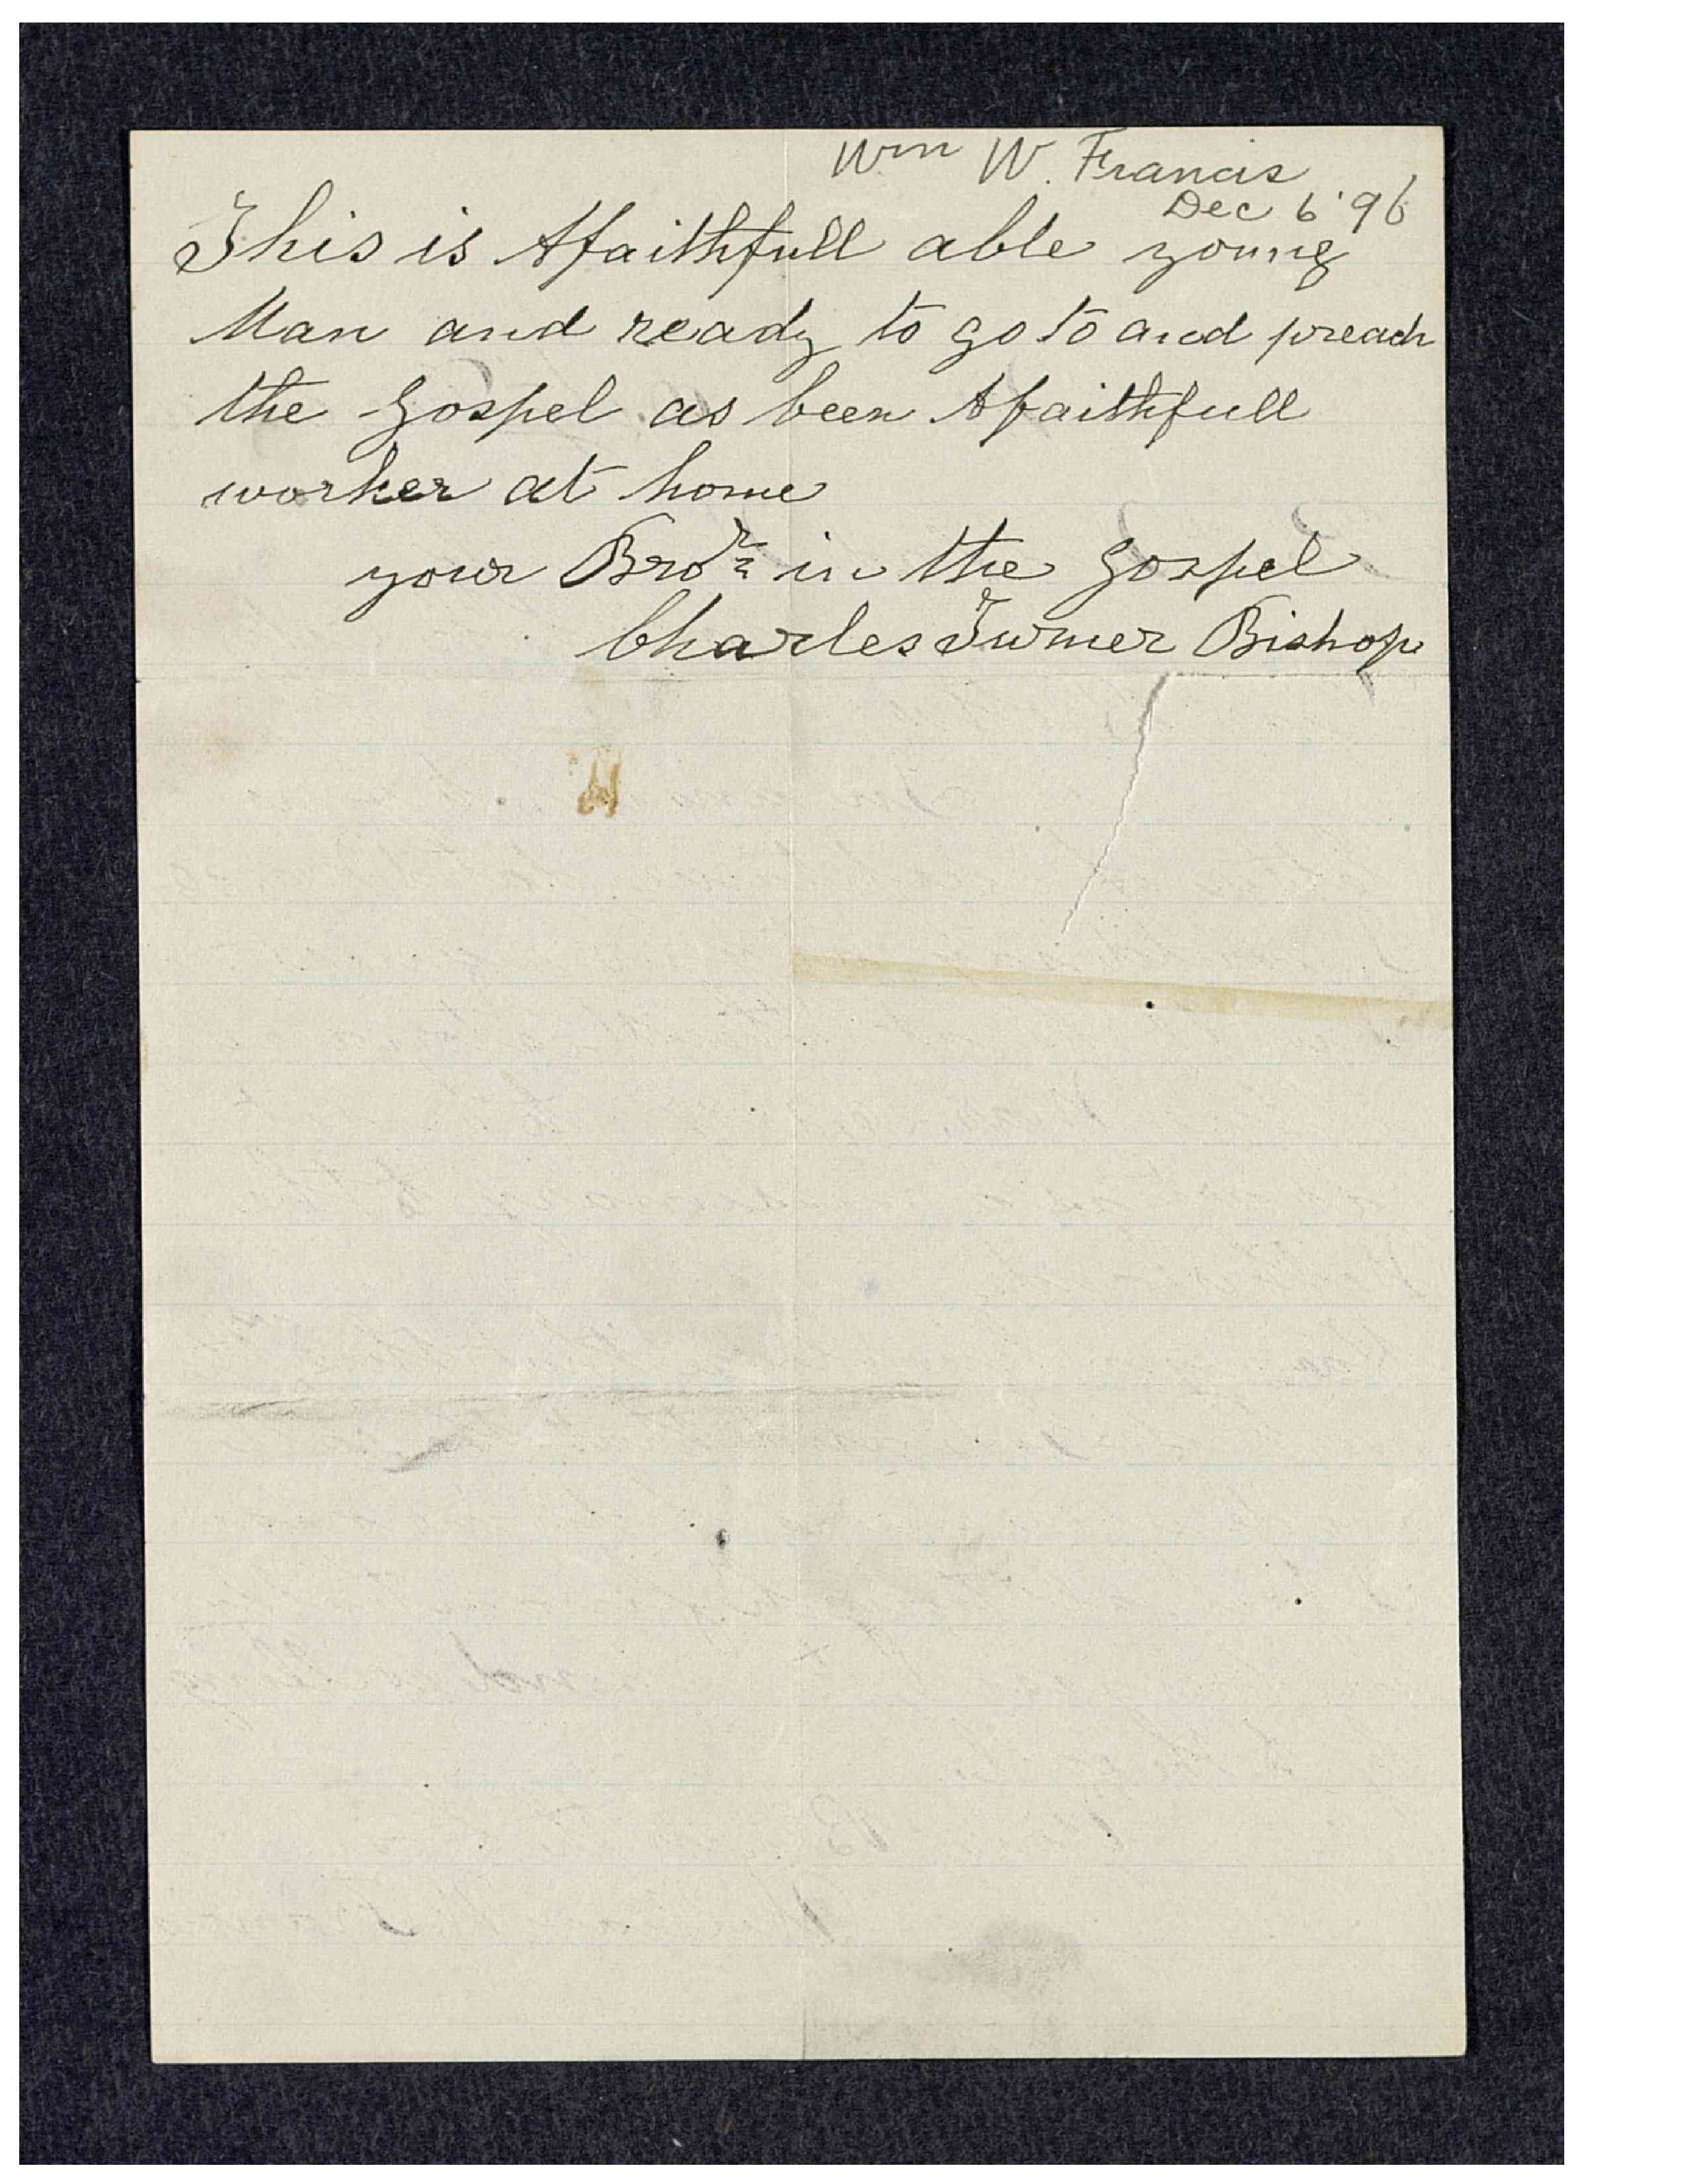 Wm W. Francis
Dec 6 '96
This is A faithfull able young
Man and ready to go to and preach
the Gospel as been A faithfull
worker at home
your Bror in the Gospel
Charles Turner Bishop